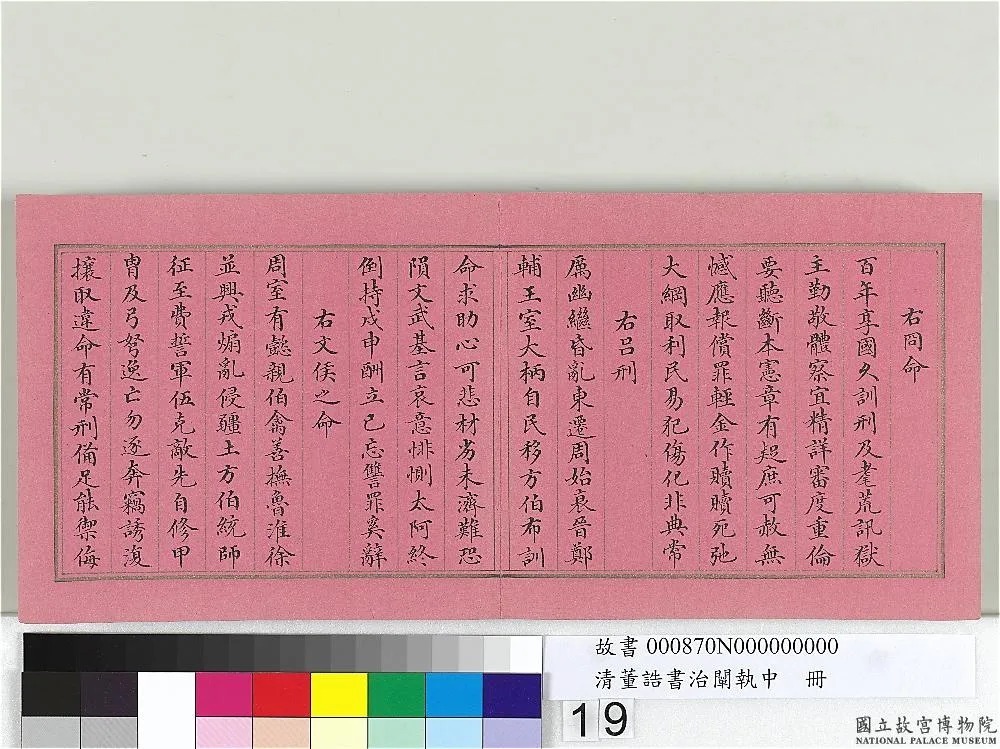 右冏命
百年享國久訓刑及耄荒訊獄
主勤敬體察宜精詳審度重倫
要聽斷本憲章有疑庶可赦無
憾應報償罪輕金作贖贖死弛
大綱取利民易犯傷化非典常
右呂刑
厲幽繼昏亂東遷周始衰晉鄭
輔王室大柄自民移方伯布訓
命求助心可悲材劣未濟難恐
隕文武基言哀意悱惻太阿終
倒持戍申酬立己忘讐罪奚辭
右文侯之命
周室有懿親伯禽善撫魯淮徐
並興戎煽亂侵疆土方伯統師
征至費誓軍伍克敵先自修甲
冑及弓弩逸亡勿逐奔竊誘復
攘取違命有常刑備足能禦侮
故書 000870N000000000
清董誥書治闡執中 冊
19
國立故宮博物院
NATIONAL PALACE MUSEUM